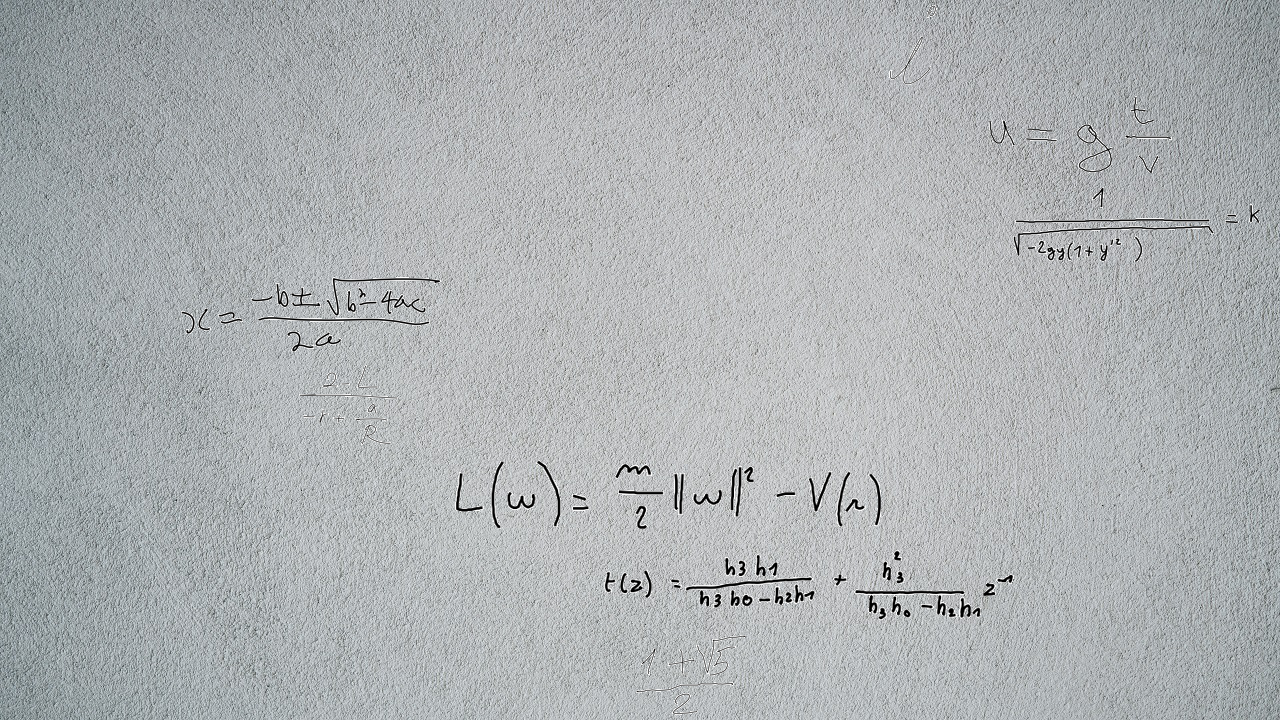 l
u = g t/v
1/√(-2gy(1+y'²)) = k
x = (-b ± √(b²-4ac))/2a
L(w) = m/2 ||w||² - V(r)
t(z) = h3 h1/(h3 h0 - h2h1) + h₃²/(h₃h₀ - h₂h₁) z⁻¹
(1+√5)/2